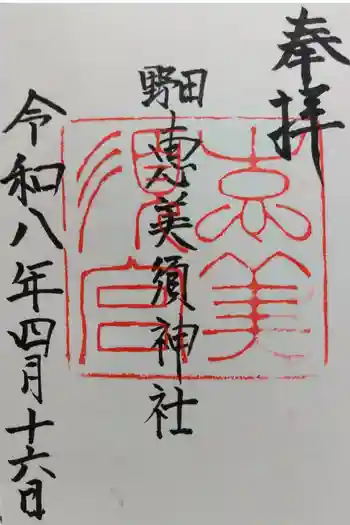 奉拝
野田
恵美須神社
令和八年四月十六日
恵美
須宮